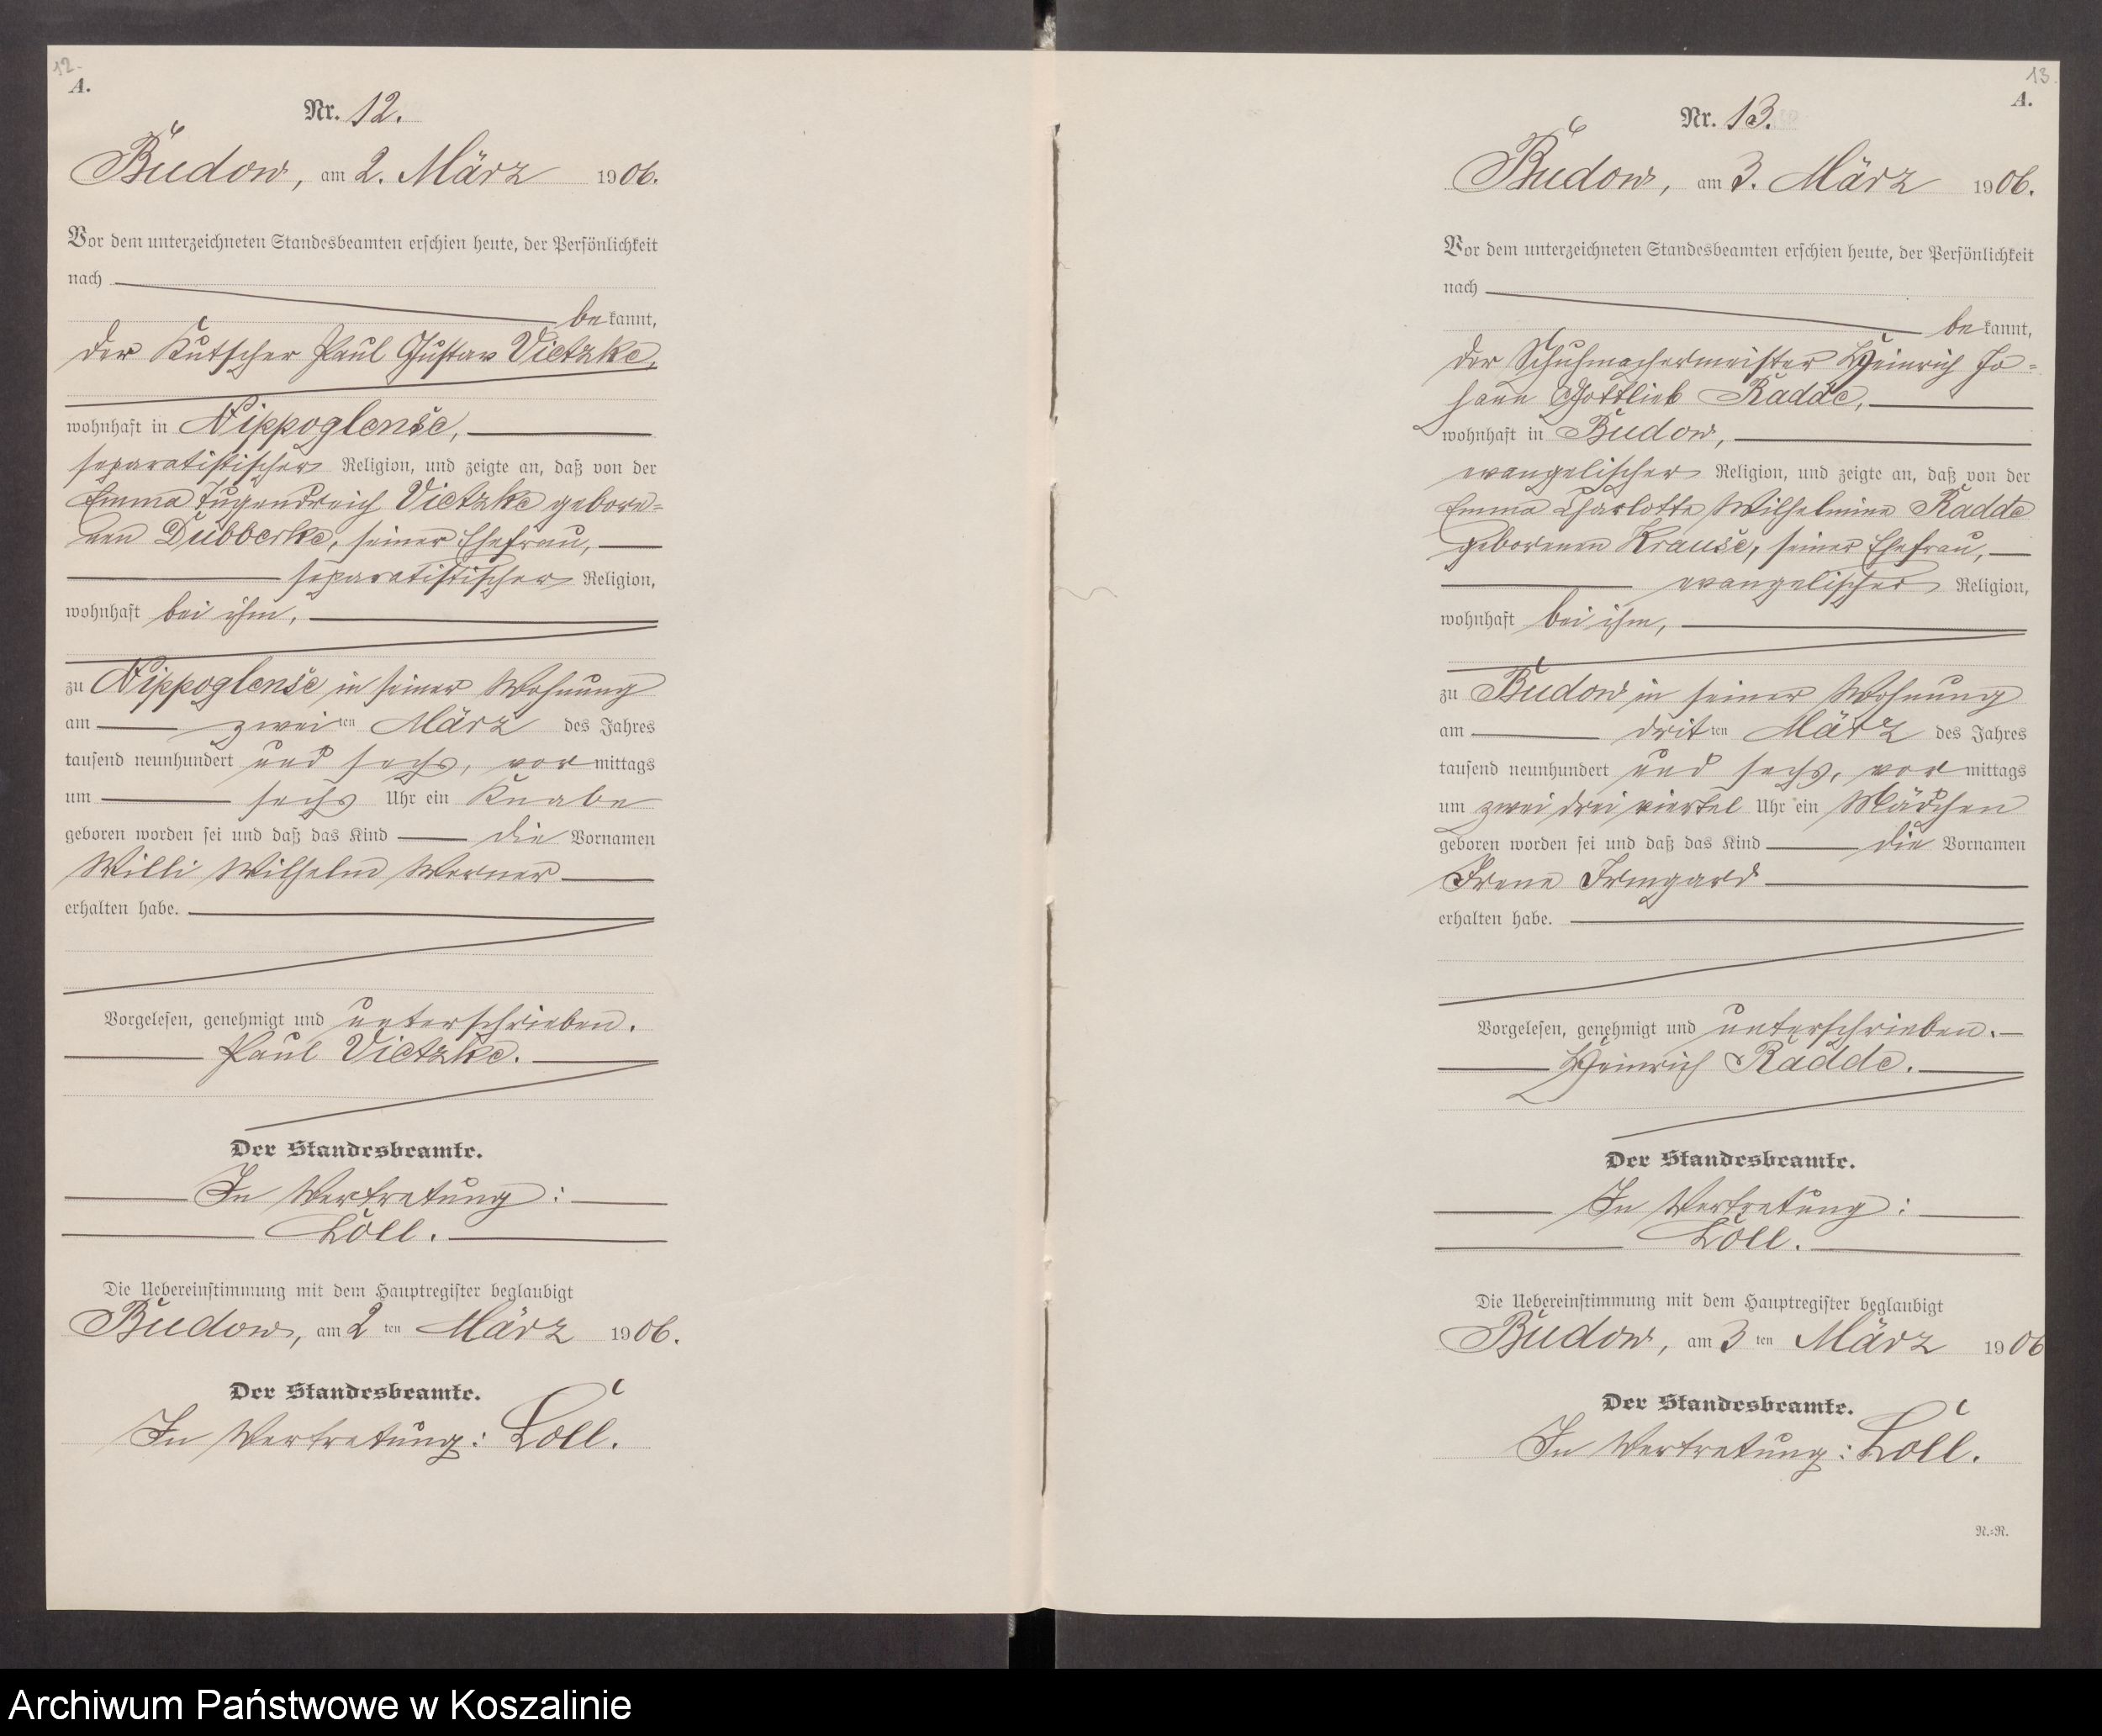 12.
A.
Nr. 12.
Budow, am 2. März 1906.
Vor dem unterzeichneten Standesbeamten erschien heute, der Persönlichkeit
nach
bekannt,
der Kutscher Paul Gustav Vietzke,
wohnhaft in Nippoglense,
separatistischer Religion, und zeigte an, daß von der
Emma Tugendreich Vietzke gebore=
nen Dubberke, seiner Ehefrau,
separatistischer Religion,
wohnhaft bei ihm,
zu Nippoglense in seiner Wohnung
am zweiten März des Jahres
tausend neunhundert und sechs, vormittags
um sechs Uhr ein Knabe
geboren worden sei und daß das Kind die Vornamen
Willi Wilhelm Werner
erhalten habe.
Vorgelesen, genehmigt und unterschrieben.
Paul Vietzke.
Der Standesbeamte.
In Vertretung:
Loll.
Die Uebereinstimmung mit dem Hauptregister beglaubigt
Budow, am 2 ten März 1906.
Der Standesbeamte.
In Vertretung: Loll.
13.
A.
Nr. 13.
Budow, am 3. März 1906.
Vor dem unterzeichneten Standesbeamten erschien heute, der Persönlichkeit
nach
bekannt,
der Schuhmachermeister Heinrich Jo=
hann Gottlieb Radde,
wohnhaft in Budow,
evangelischer Religion, und zeigte an, daß von der
Emma Charlotte Wilhelmine Radde
geborenen Krause, seiner Ehefrau,
evangelischer Religion,
wohnhaft bei ihm,
zu Budow in seiner Wohnung
am dritten März des Jahres
tausend neunhundert und sechs, vormittags
um zwei drei viertel Uhr ein Mädchen
geboren worden sei und daß das Kind die Vornamen
Irene Irmgard
erhalten habe.
Vorgelesen, genehmigt und unterschrieben.
Heinrich Radde.
Der Standesbeamte.
In Vertretung:
Loll.
Die Uebereinstimmung mit dem Hauptregister beglaubigt
Budow, am 3 ten März 1906
Der Standesbeamte.
In Vertretung: Loll.
N.=R.
Archiwum Państwowe w Koszalinie